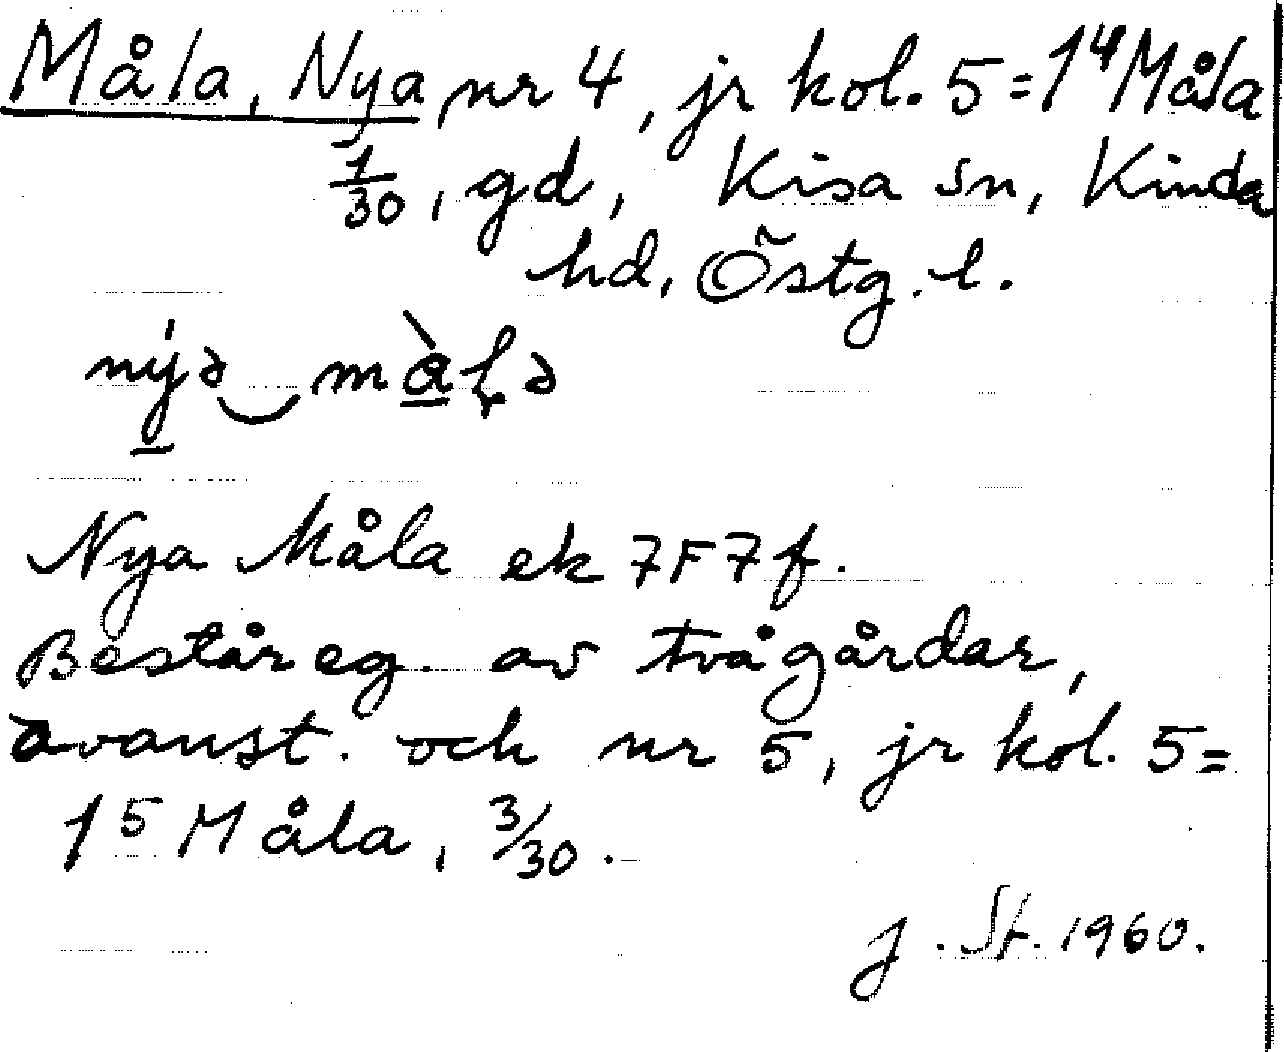 Måla, Nya nr 4, jr kol. 5=1⁴ Måla
1/30, gd, Kisa sn, Kinda
hd, Östg. l.
nýə‿màl̥ə
Nya Måla ek 7F7f.
Består eg. av två gårdar,
ovanst. och nr 5, jr kol. 5=
1⁵ Måla, 3/30.
J. St. 1960.